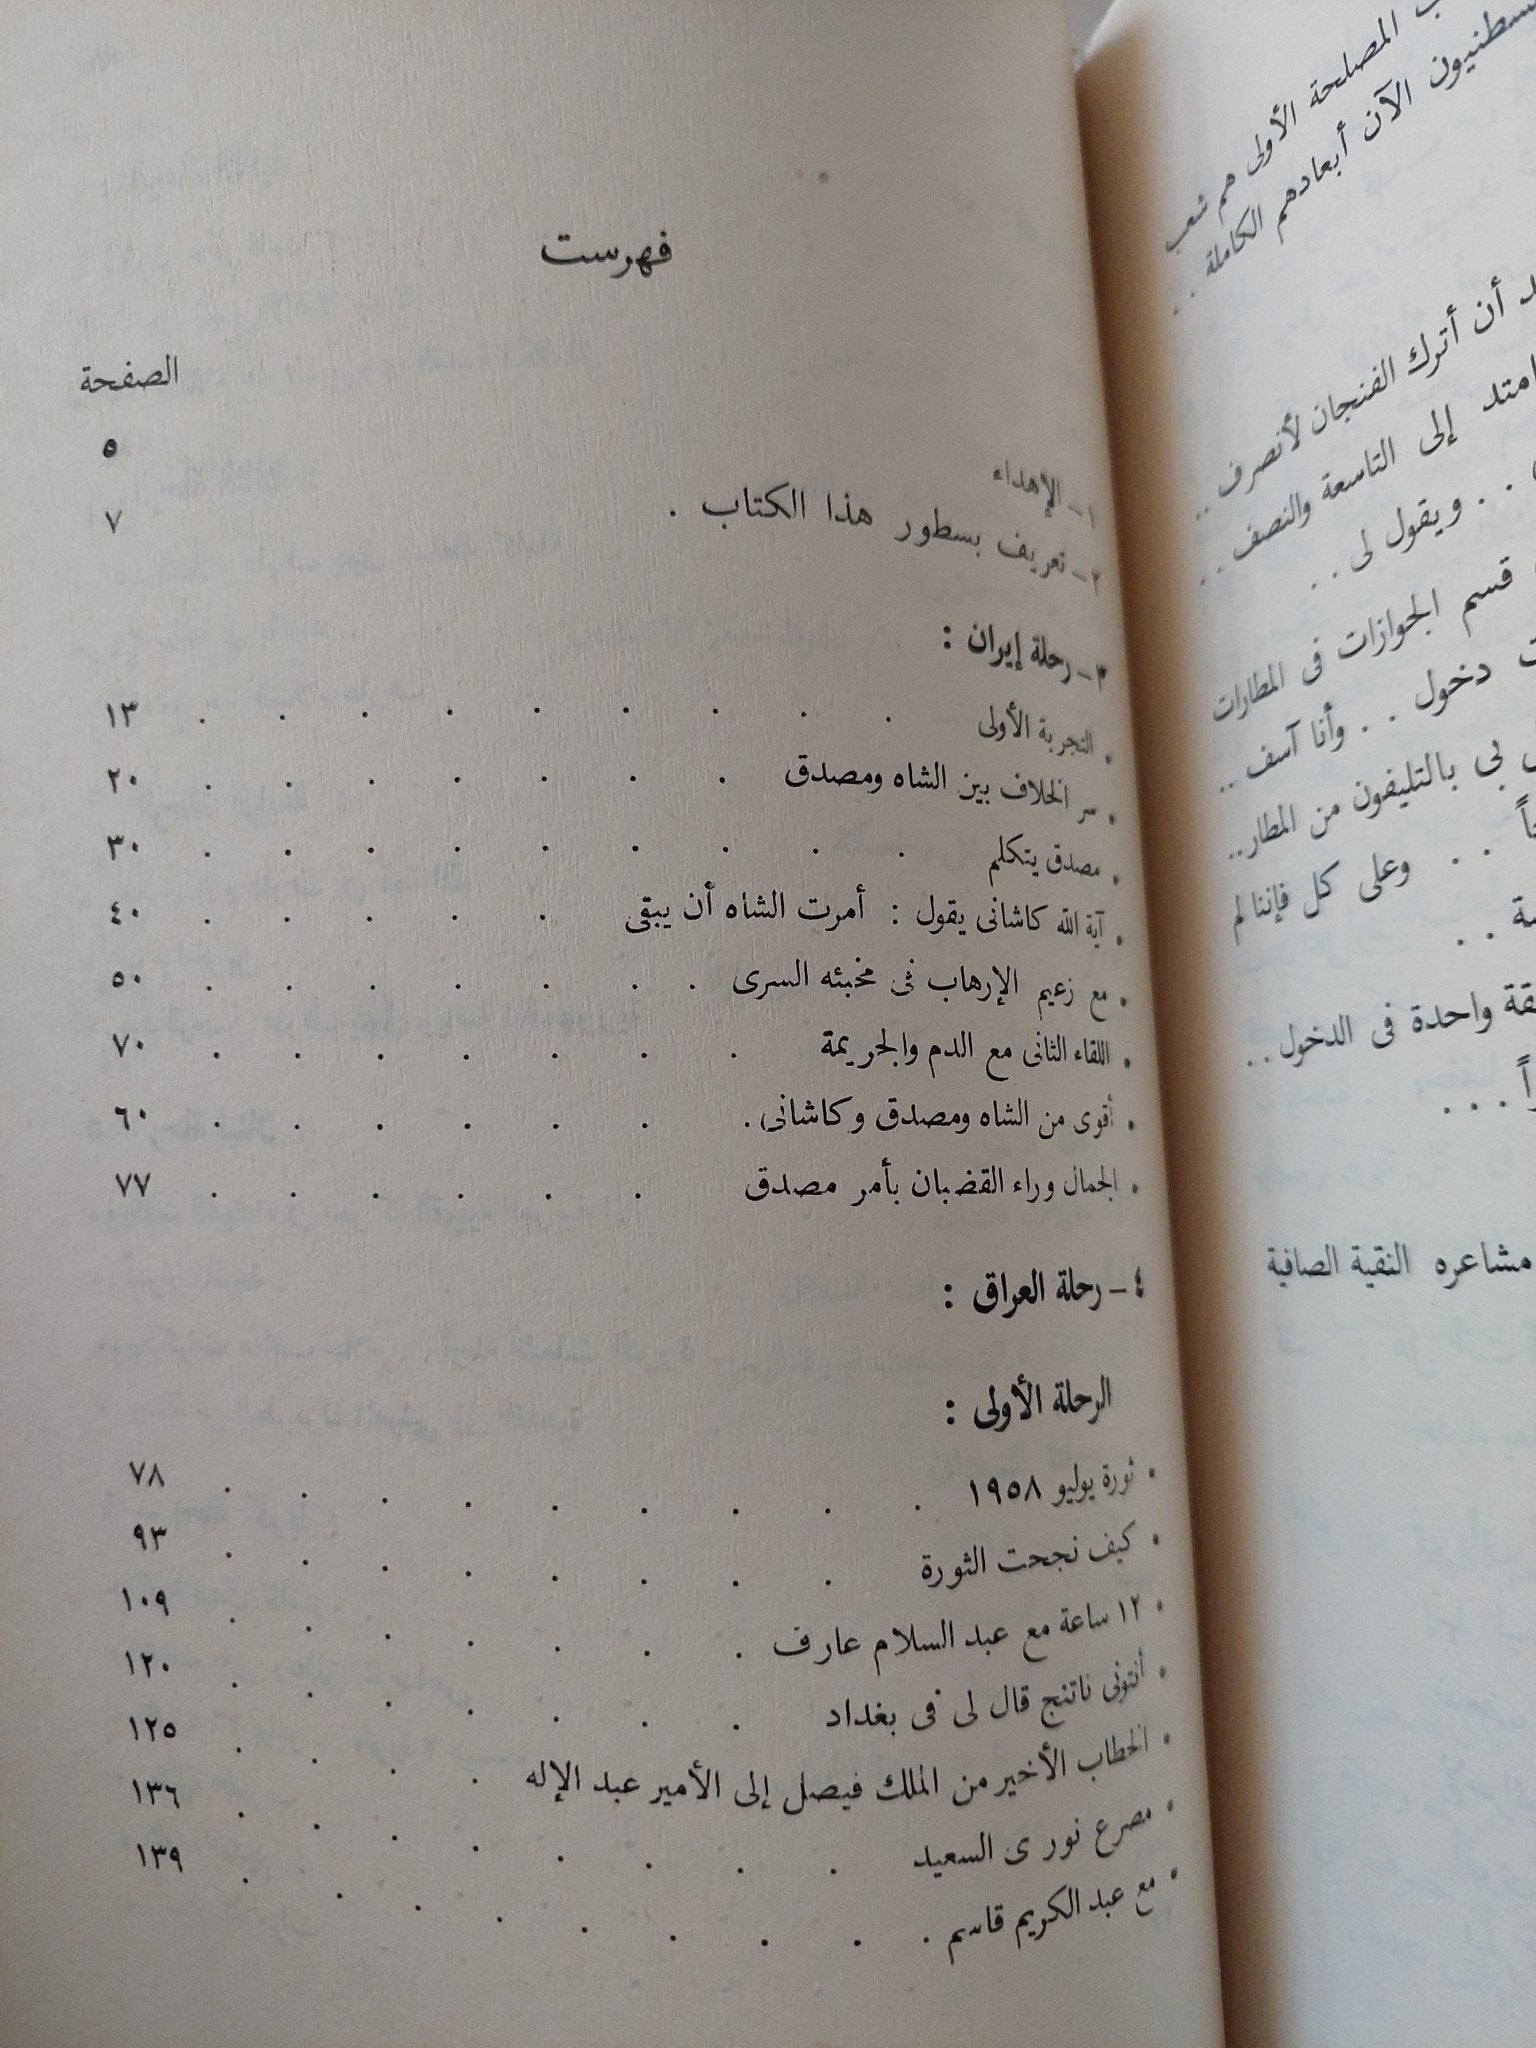 فهرست
الصفحة
١ – الإهداء ٥
٢ – تعريف بسطور هذا الكتاب . ٧
٣ – رحلة إيران :
• التجربة الأولى . . . . . . . . . ١٣
• سر الخلاف بين الشاه ومصدق . . . . . . . ٢٠
• مصدق يتكلم . . . . . . . . . ٣٠
• آية الله كاشانى يقول : أمرت الشاه أن يبقى . . . . . ٤٠
• مع زعيم الإرهاب فى مخبئه السرى . . . . . . . ٥٠
• اللقاء الثانى مع الدم والجريمة . . . . . . . ٧٠
• أقوى من الشاه ومصدق وكاشانى . . . . . . . ٦٠
• الجمال وراء القضبان بأمر مصدق . . . . . . ٧٧
٤ – رحلة العراق :
الرحلة الأولى :
• ثورة يوليو ١٩٥٨ . . . . . . . . . ٧٨
• كيف نجحت الثورة . . . . . . . . ٩٣
• ١٢ ساعة مع عبد السلام عارف . . . . . . . ١٠٩
• أنتونى ناتنج قال لى فى بغداد . . . . . . . ١٢٠
• الخطاب الأخير من الملك فيصل إلى الأمير عبد الإله . . . . ١٢٥
• مصرع نورى السعيد . . . . . . . . ١٣٦
• مع عبد الكريم قاسم . . . . . . . . . ١٣٩
المصلحة الأولى هم شعب
الآن أبعادهم الكاملة . .
أن أترك الفنجان لأنصرف . .
امتد إلى التاسعة والنصف . .
. . ويقول لى . .
قسم الجوازات فى المطارات
دخول . . وأنا آسف . .
بى بالتليفون من المطار . .
. . وعلى كل فإننا لم
. .
واحدة فى الدخول . .
. . .
مشاعره النقية الصافية